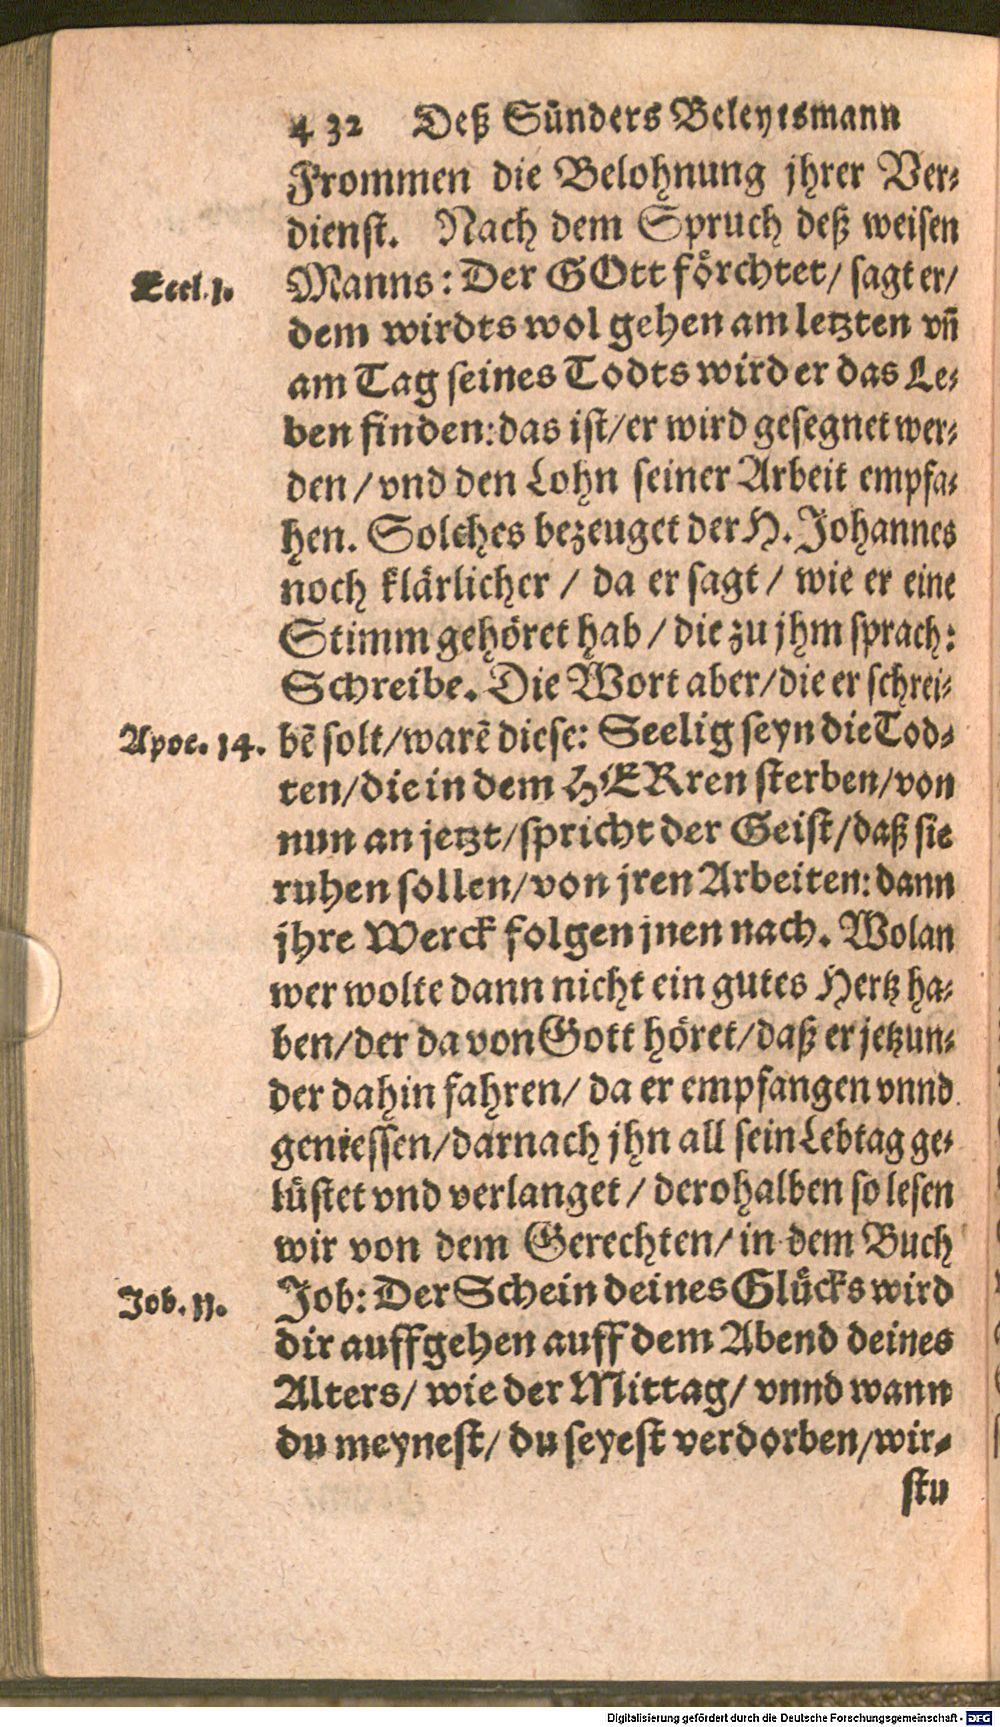 432 Deß Sünders Beleytsmann
Frommen die Belohnung jhrer Ver⸗
dienst. Nach dem Spruch deß weisen
Eccl. 1. Manns: Der GOtt förchtet/ sagt er/
dem wirdts wol gehen am letzten vñ
am Tag seines Todts wird er das Le⸗
ben finden: das ist/ er wird gesegnet wer⸗
den / vnd den Lohn seiner Arbeit empfa⸗
hen. Solches bezeuget der H. Johannes
noch klärlicher / da er sagt / wie er eine
Stimm gehöret hab / die zu jhm sprach:
Schreibe. Die Wort aber/ die er schrei⸗
Apoc. 14. bẽ solt/ warẽ diese: Seelig seyn die Tod⸗
ten/ die in dem HERren sterben/ von
nun an jetzt/ spricht der Geist/ daß sie
ruhen sollen/ von jren Arbeiten: dann
jhre Werck folgen jnen nach. Wolan
wer wolte dann nicht ein gutes Hertz ha⸗
ben/ der da von Gott höret/ daß er jetzun⸗
der dahin fahren/ da er empfangen vnnd
geniessen/ darnach jhn all sein Lebtag ge⸗
lüstet vnd verlanget / derohalben so lesen
wir von dem Gerechten/ in dem Buch
Job. 11. Job: Der Schein deines Glücks wird
dir auffgehen auff dem Abend deines
Alters/ wie der Mittag/ vnnd wann
du meynest/ du seyest verdorben/ wir⸗
stu
Digitalisierung gefördert durch die Deutsche Forschungsgemeinschaft - DFG